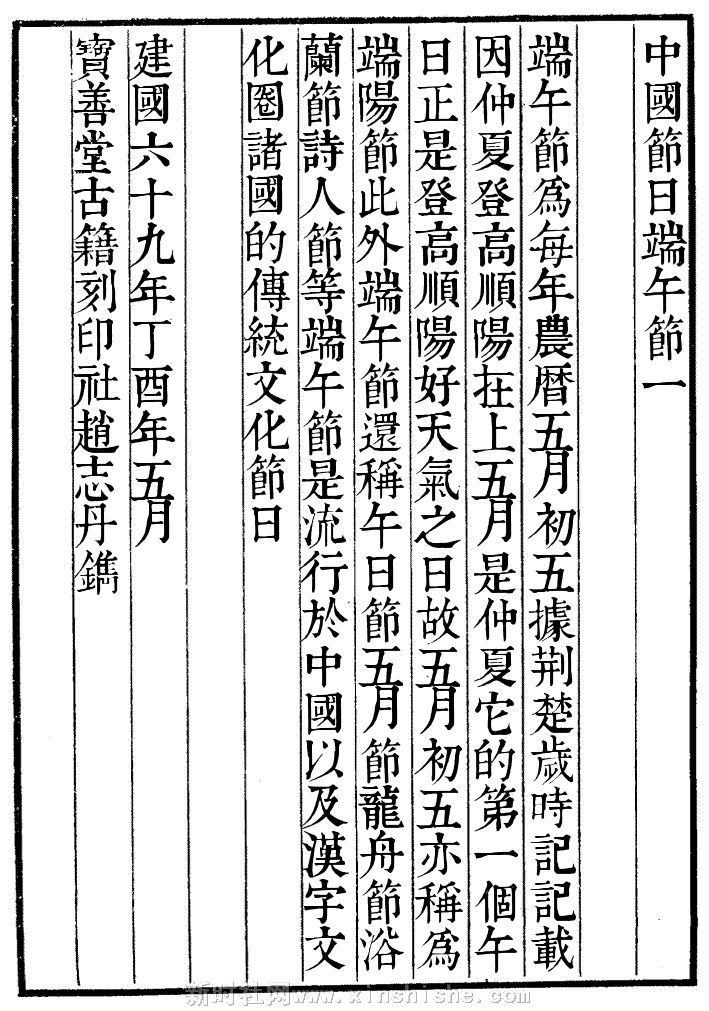 中國節日端午節一
端午節為每年農暦五月初五據荆楚歲時記記載
因仲夏登高順陽在上五月是仲夏它的第一個午
日正是登高順陽好天氣之日故五月初五亦稱為
端陽節此外端午節還稱午日節五月節龍舟節浴
蘭節詩人節等端午節是流行於中國以及漢字文
化圈諸國的傳統文化節日
建國六十九年丁酉年五月
寶善堂古籍刻印社趙志丹鐫
新时社网www.xinshishe.com